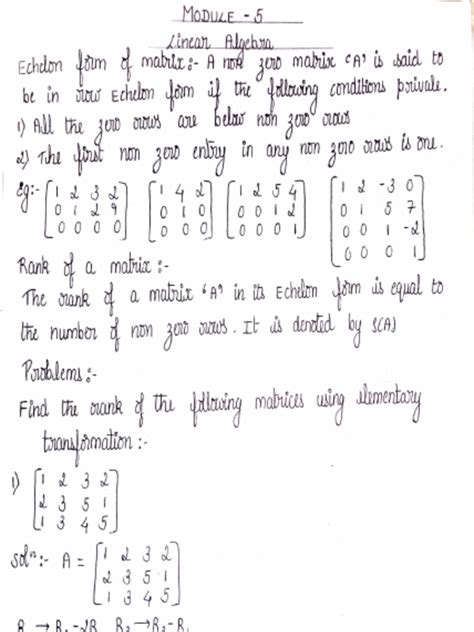 MODULE - 5
Linear Algebra
Echelon form of matrix :- A non zero matrix 'A' is said to
be in row Echelon form if the following conditions privale.
1) All the zero rows are below non zero rows
2) The first non zero entry in any non zero rows is one.
Eg:- [1 2 3 2 [1 4 2 [1 2 5 4 [1 2 -3 0
0 1 2 9 0 1 0 0 0 1 2 0 1 5 7
0 0 0 0] 0 0 0] 0 0 0 1] 0 0 1 -2
0 0 0 1]
Rank of a matrix :-
The rank of a matrix 'A' in its Echelon form is equal to
the number of non zero rows. It is denoted by ρ(A)
Problems :-
Find the rank of the following matrices using elementary
transformation :-
1) [1 2 3 2
2 3 5 1
1 3 4 5]
solⁿ :- A = [1 2 3 2
2 3 5 1
1 3 4 5]